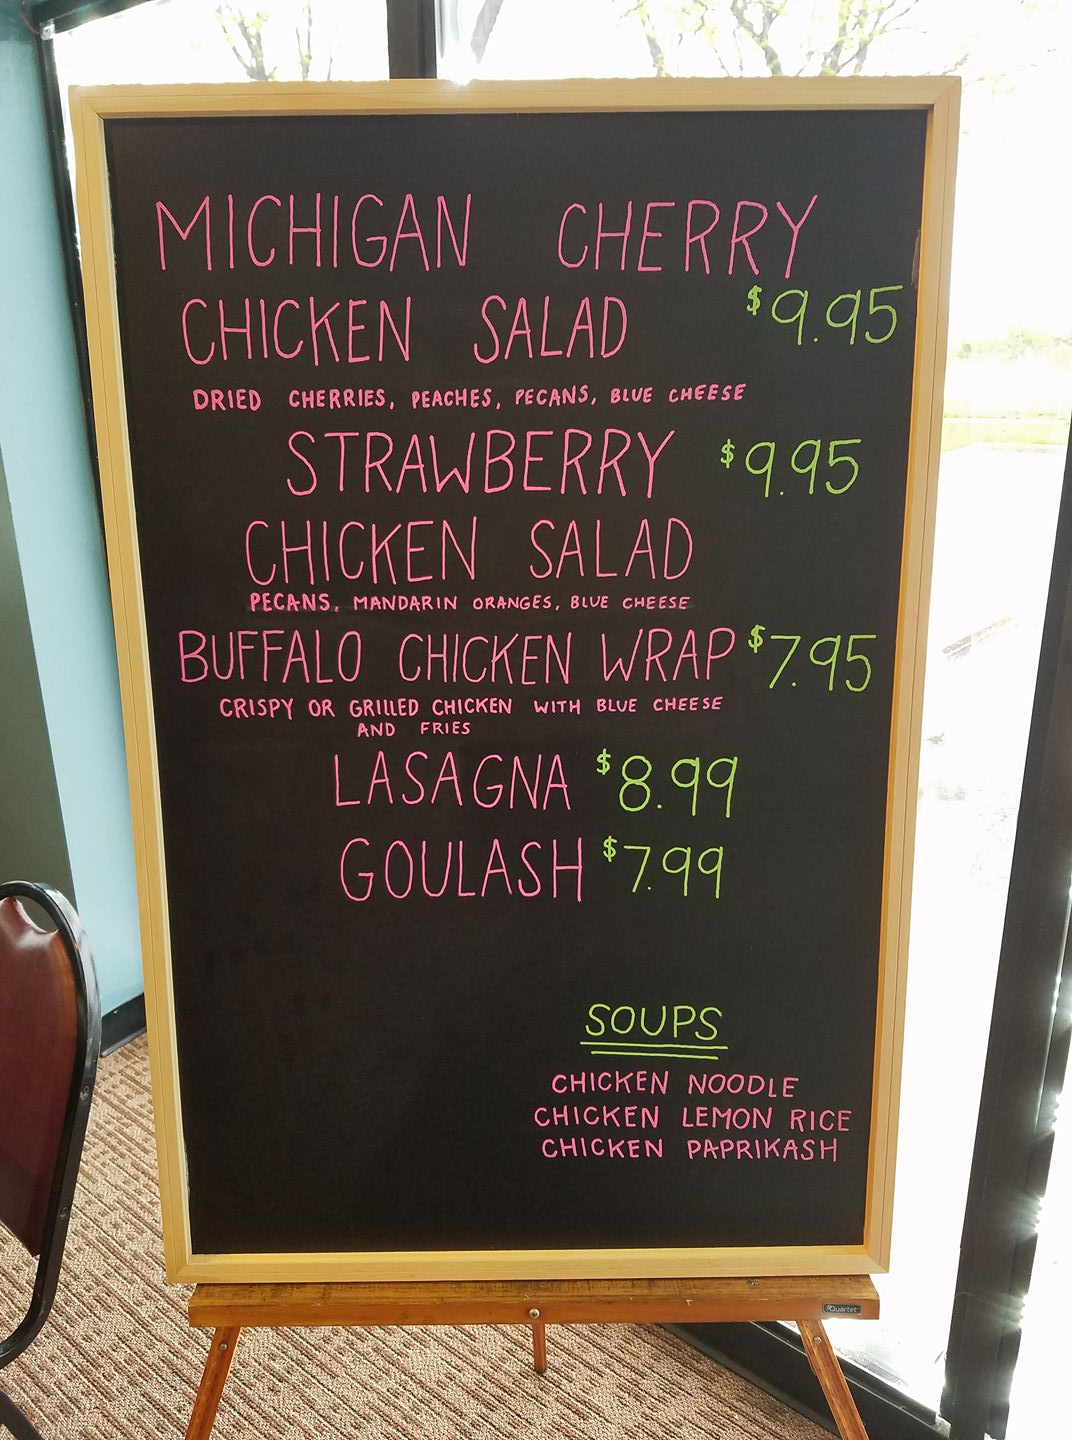 MICHIGAN CHERRY
CHICKEN SALAD $9.95
DRIED CHERRIES, PEACHES, PECANS, BLUE CHEESE
STRAWBERRY $9.95
CHICKEN SALAD
PECANS, MANDARIN ORANGES, BLUE CHEESE
BUFFALO CHICKEN WRAP $7.95
CRISPY OR GRILLED CHICKEN WITH BLUE CHEESE
AND FRIES
LASAGNA $8.99
GOULASH $7.99
SOUPS
CHICKEN NOODLE
CHICKEN LEMON RICE
CHICKEN PAPRIKASH
Quartet